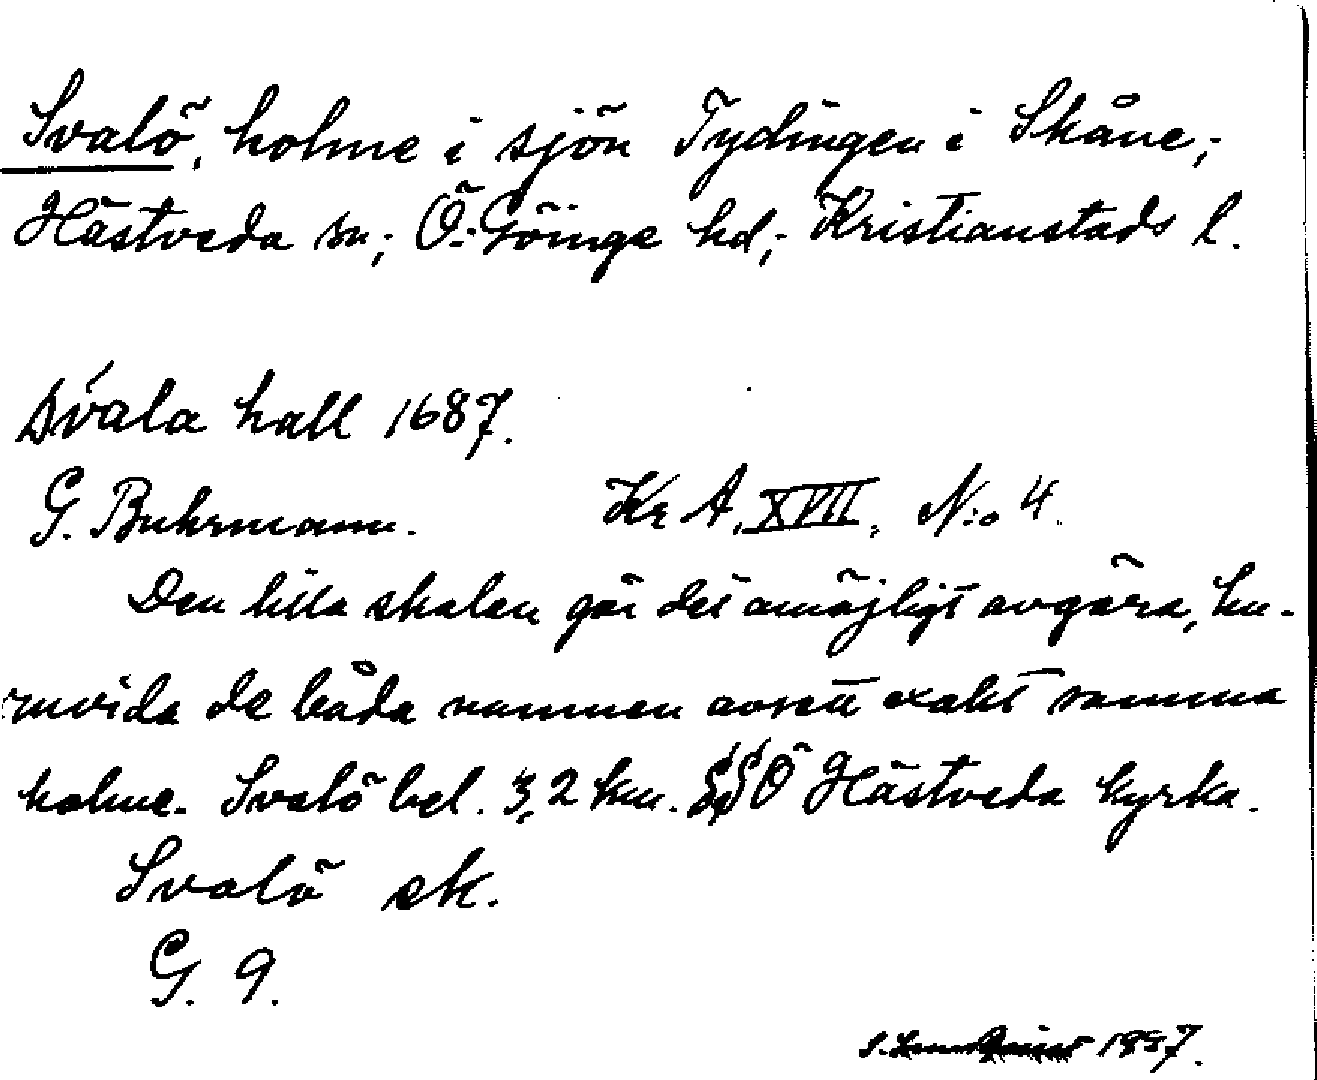 Svalö, holme i sjön Tydingen i Skåne;
Hästveda sn; Ö. Göinge hd; Kristianstads l.
Svala hall 1687.
G. Buhrmann. Kr A. XVII, N:o 4.
Den lilla skalan gör det omöjligt avgöra, hu-
ruvida de båda namnen avsett exakt samma
holme. Svalö bel. 3,2 km. SSÖ Hästveda kyrka.
Svalö ek.
G. 9.